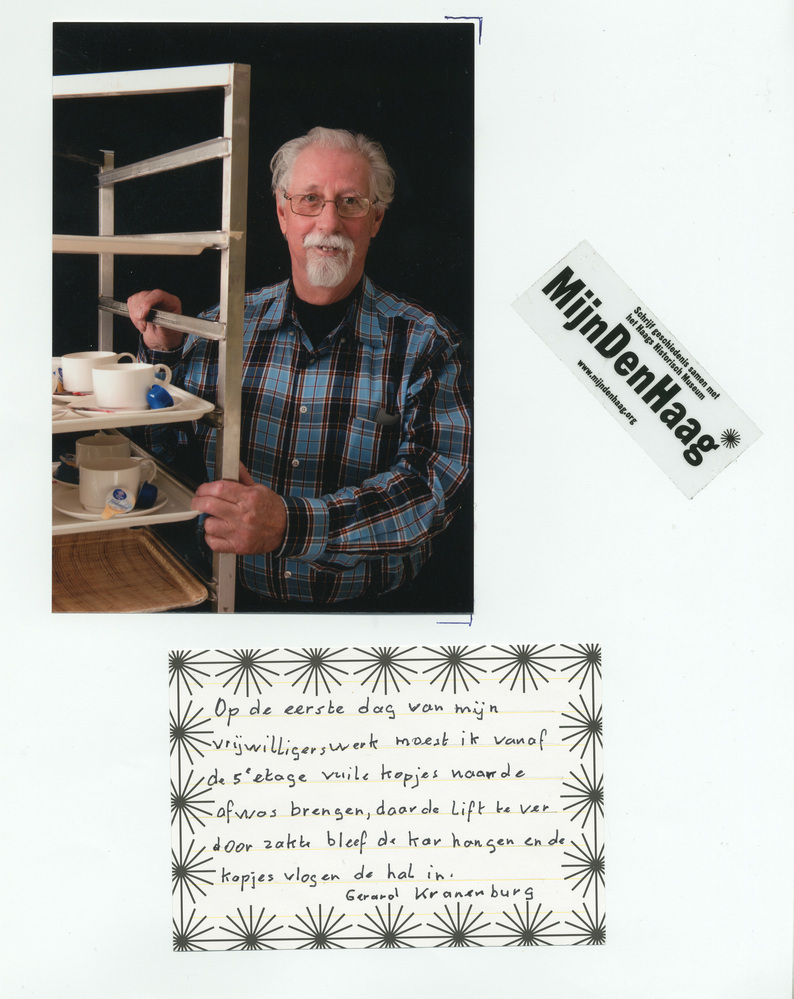 Schrijf geschiedenis samen met
het Haags Historisch Museum
MijnDenHaag
www.mijndenhaag.org
Op de eerste dag van mijn
vrijwilligerswerk moest ik vanaf
de 5e etage vuile kopjes naar de
afwas brengen, daar de Lift te ver
door zakte bleef de kar hangen en de
kopjes vlogen de hal in.
Gerard Kranenburg